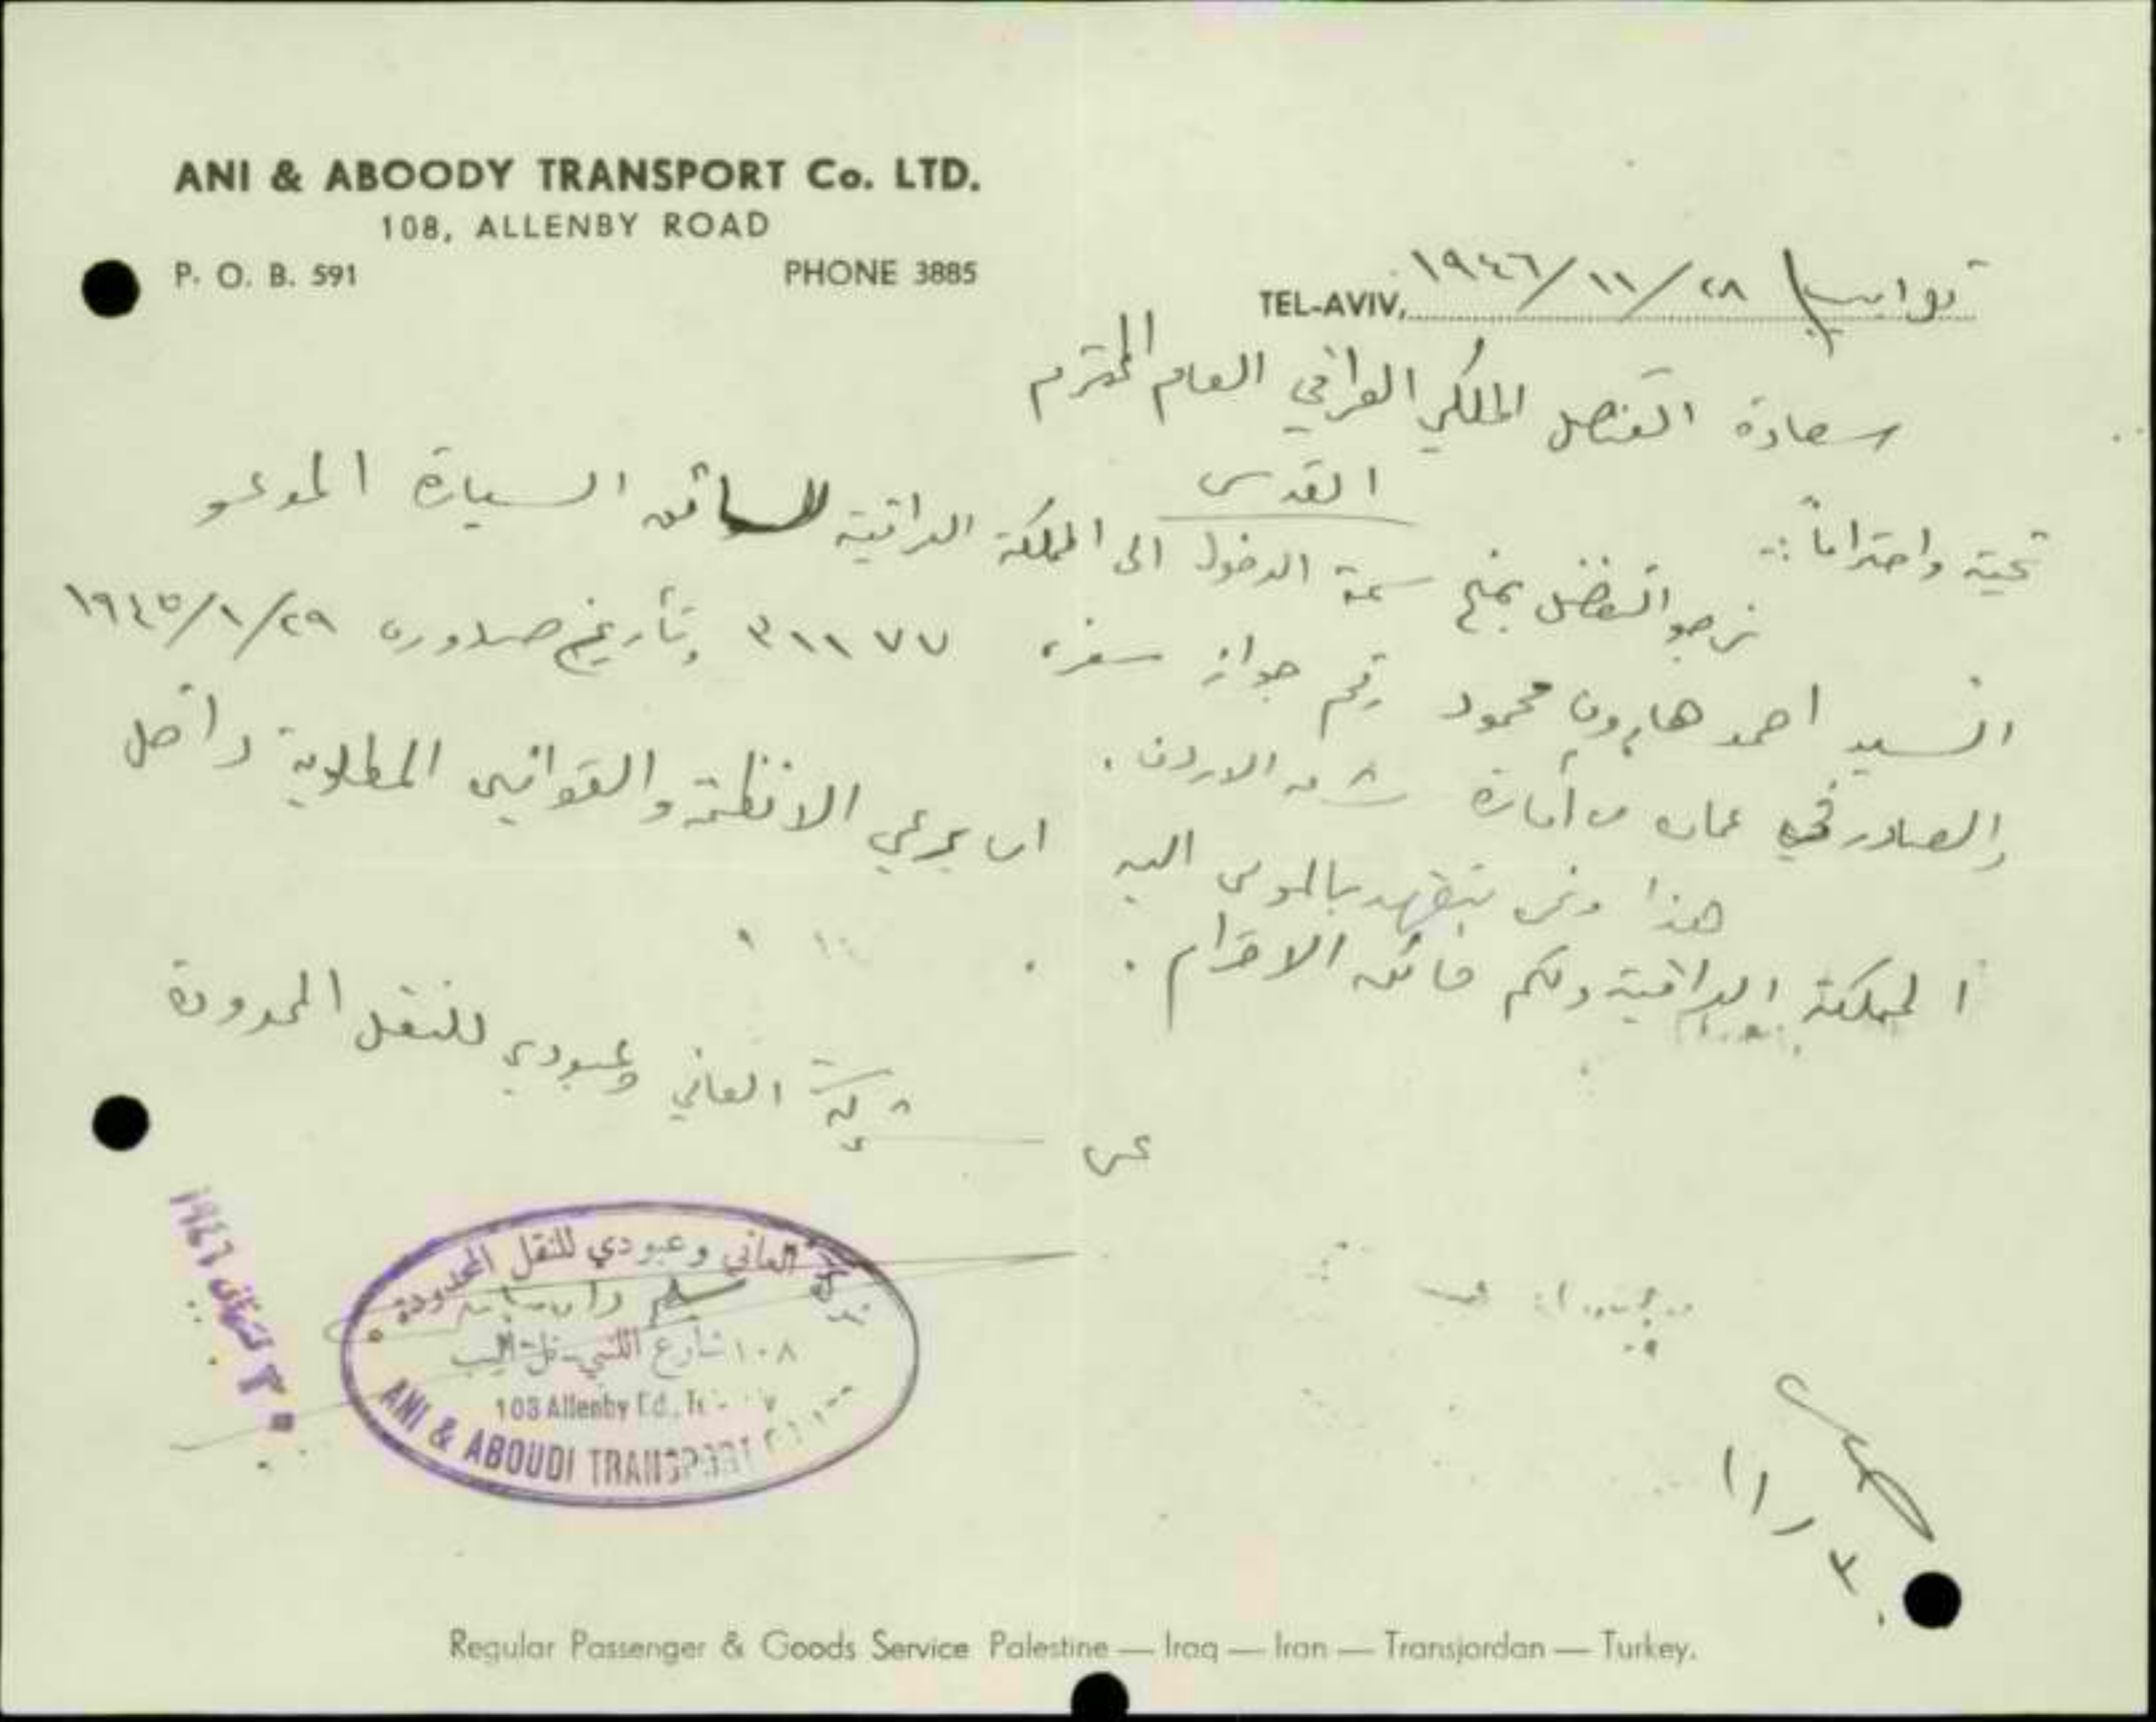 ANI & ABOODY TRANSPORT Co. LTD.
108, ALLENBY ROAD
P. O. B. 591 PHONE 3885
TEL-AVIV, ١٩٤٦/١١/٢٨
سعادة القنصل الملكي العراقي العام المحترم
القدس
تحية واحتراماً :-
نرجو التفضل بمنح سمة الدخول الى المملكة العراقية للسائق السيارة المدعو
السيد احمد هارون محمود رقم جواز سفره ٣١١٧٧ وتأريخ صدوره ١٩٤٥/١/٢٩
والصادر في عمان من أمارة شرق الاردن .
هذا ونحن نتعهد بالمومى اليه ان يرعي الانظمة والقوانين المطلوبة داخل
المملكة العراقية ولكم فائق الاحترام .
عن شركة العاني وعبودي للنقل المحدودة
شركة العاني وعبودي للنقل المحدودة
١٠٨ شارع اللنبي - تل أبيب
108 Allenby Rd.,
ANI & ABOUDI TRANSPORT
٣٠ تشرين ١٩٤٦
٣٠/١١
Regular Passenger & Goods Service Palestine — Iraq — Iran — Transjordan — Turkey.